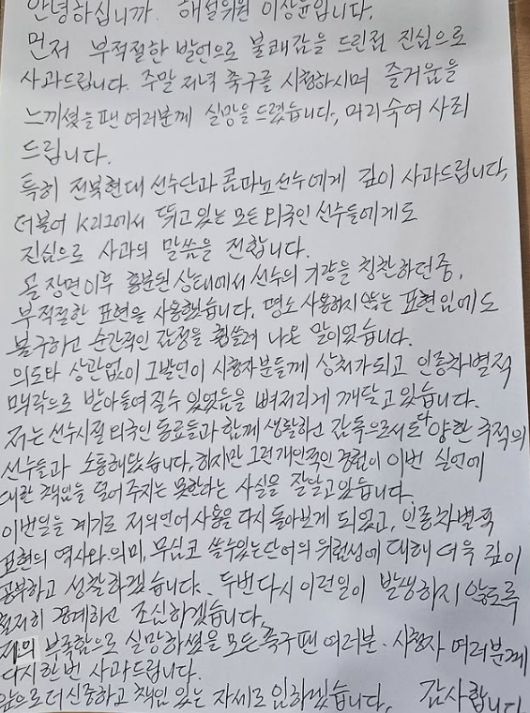 안녕하십니까. 해설위원 이상윤입니다.
먼저 부적절한 발언으로 불쾌감을 드린점 진심으로
사과드립니다. 주말 저녁 축구를 시청하시며 즐거움을
느끼셨을 팬 여러분께 실망을 드렸습니다, 머리숙여 사죄
드립니다.
특히 전북현대 선수단과 콤파뇨선수에게 깊이 사과드립니다,
더불어 K리그에서 뛰고 있는 모든 외국인 선수들에게도
진심으로 사과의 말씀을 전합니다.
골 장면이후 흥분된 상태에서 선수의 기량을 칭찬하던중,
부적절한 표현을 사용했습니다. 평소 사용하지 않는 표현임에도
불구하고 순간적인 감정을 휩쓸려 나온 말이었습니다.
의도와 상관없이 그발언이 시청자분들께 상처가되고 인종차별적
맥락으로 받아들여질수 있었음을 뼈저리게 깨닫고 있습니다.
저는 선수시절 외국인 동료들과 함께 생활하고 감독으로서도 다양한 국적의
선수들과 소통해왔습니다, 하지만 그런 개인적인 경험이 이번 실언에
대한 책임을 덜어 주지는 못한다는 사실을 잘알고있습니다.
이번일을 계기로 저의언어사용을 다시 돌아보게 되었고, 인종차별적
표현의 역사와 의미, 무심코 쓸수있는단어의 위험성에 대해 더욱 깊이
공부하고 성찰하겠습니다. 두번 다시 이런일이 발생하지 않도록
철저히 경계하고 조심하겠습니다.
저의 부족함으로 실망하셨을 모든 축구팬 여러분. 시청자 여러분께
다시한번 사과드립니다.
앞으로 더 신중하고 책임 있는 자세로 임하겠습니다. 감사합니다